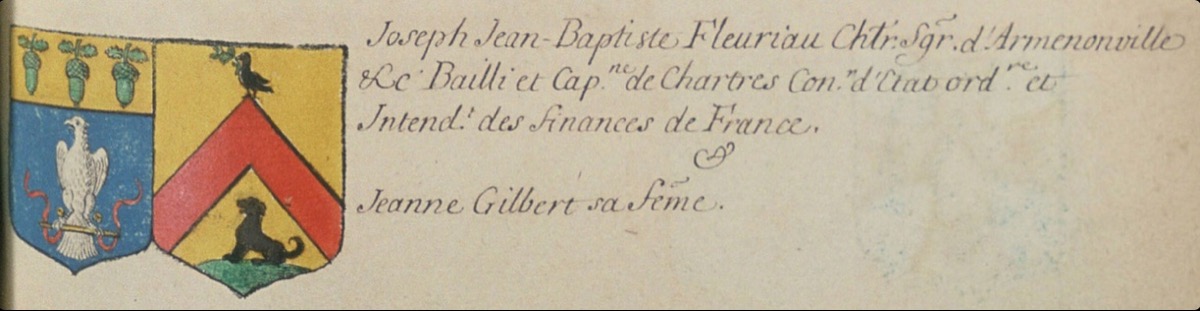 Joseph Jean-Baptiste Fleuriau Chtr. Sgr. d'Armenonville
&c. Bailli et Cap.ne de Chartres Con.r d'Etat ord.re et
Intend.t des finances de France.
&
Jeanne Gilbert sa fem̄e.